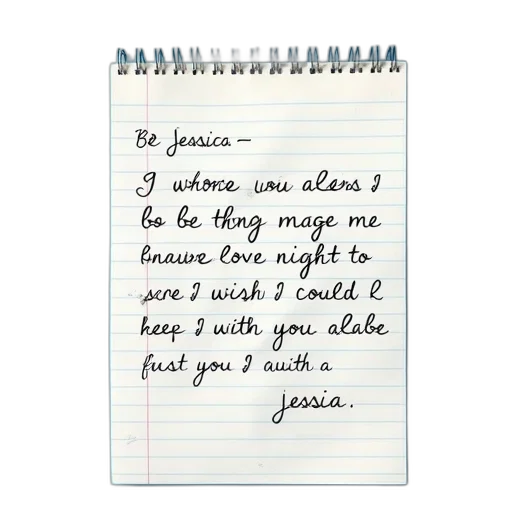 Be Jessica —
I whorce wou alers I
bo be thng mage me
bnauve love night to
scre I wish I could l
keep I with you alabe
fust you I auith a
jessia.